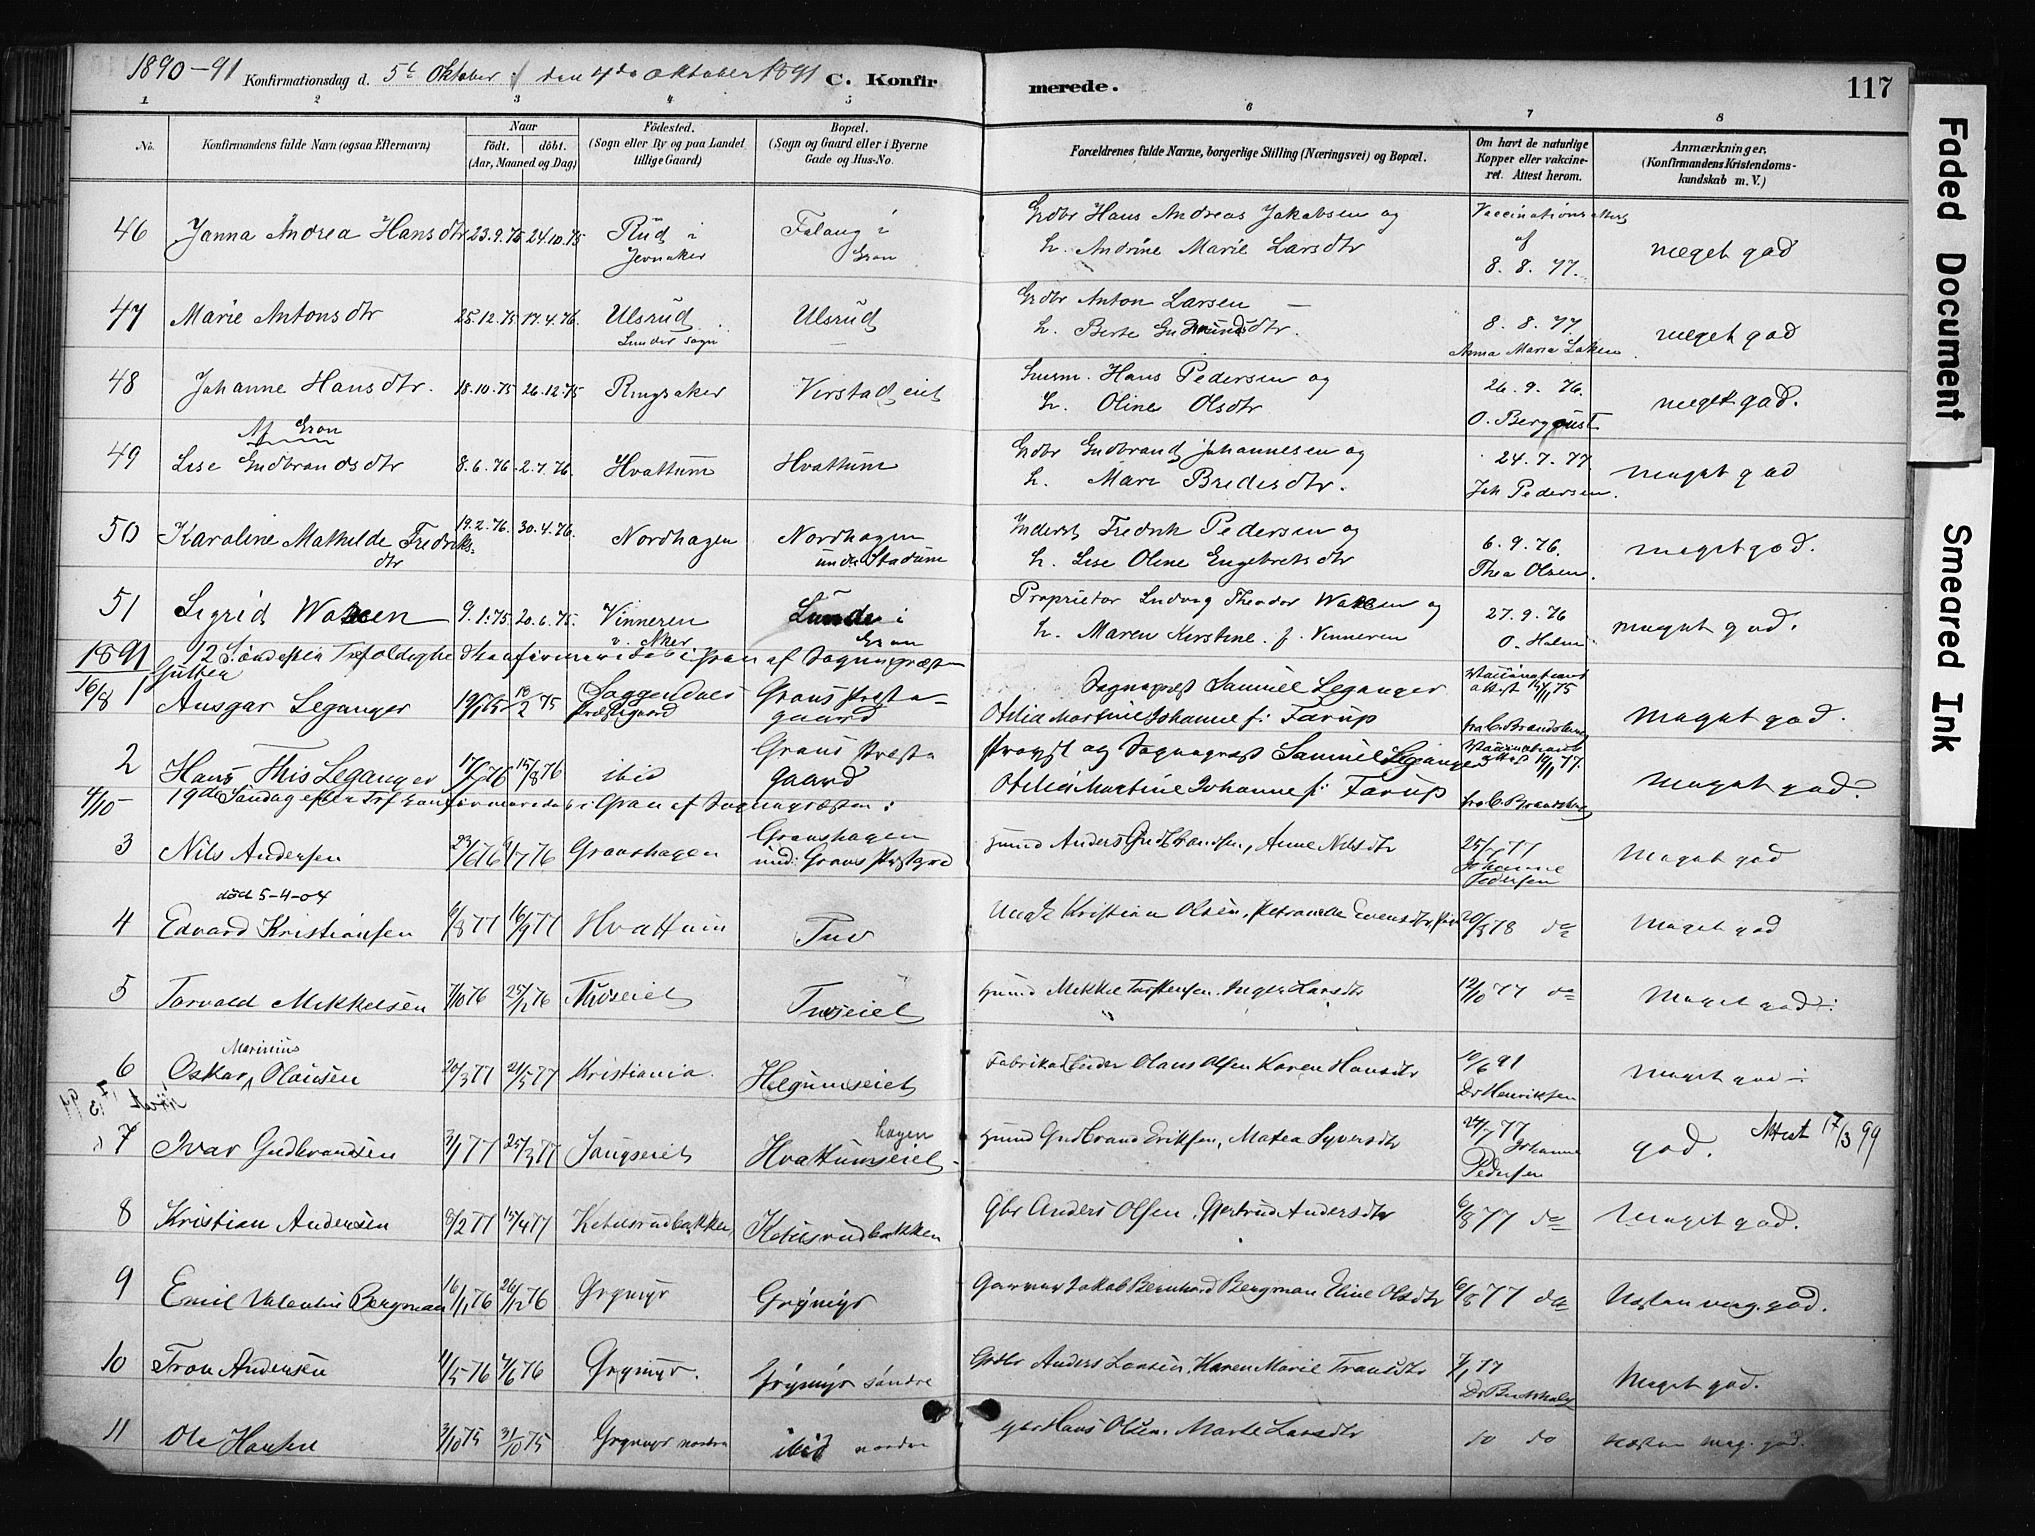 1890-91 Konfirmationsdag d. 5te Oktober den 4de Oktober 1891 C. Konfirmerede. 117
1 2 3 4 5 6 7 8
No.
Konfirmandens fulde Navn (ogsaa Efternavn)
Naar
födt. döbt.
(Aar, Maaned og Dag)
Födested.
(Sogn eller By og paa Landet tillige Gaard)
Bopæl.
(Sogn og Gaard eller i Byerne Gade og Hus-No.
Forældrenes fulde Navne, borgerlige Stilling (Næringsvei) og Bopæl.
Om havt de naturlige Kopper eller vaccineret. Attest herom.
Anmærkninger.
(Konfirmandens Kristendomskundskab m. V.)
46 Janna Andrea Hansdtr 23.9.75 24.10.75 Rud i Jevnaker Falang i Gran Gdbr Hans Andreas Jakobsen og h. Andrine Marie Larsdtr Vaccinationsattest af 8.8.77. meget god
47 Marie Antonsdtr 25.12.75 17.4.76. Ulsrud Lunder sogn Ulsrud Gdbr Anton Larsen – h. Berte Gudmundsdtr. 8.8.77. Anna Maria Laken meget god
48 Johanne Hansdtr. 18.10.75 26.12.75 Ringsaker Virstadseiet husm. Hans Pedersen og h. Oline Olsdtr 26.9.76. O. Bergquist meget god.
Af Gran
49 Lise Gudbrandsdtr 8.6.76. 2.7.76. Hvattum Hvattum Gdbr Gudbrand Johannesen og h. Mari Bredesdtr. 24.7.77 Joh Pedersen. meget god
50 Karoline Mathilde Fredriksdtr 19.2.76. 30.4.76. Nordhagen Nordhagen under Stadum Inderst Fredrik Pedersen og h. Lise Oline Engebretsdtr 6.9.76. Thea Olsen. meget god.
51 Sigrid 9.1.75. 20.6.75. Vinneren v. Aker Lunde i Gran Proprietær Ludvig Theodor og h. Maren Kirstine f. Vinneren 27.9.76 O. Holm meget god.
1891 12 Söndefter Trefoldighed konfirmeredes i Gran af Sognepræsten
Gutter
16/8 1 Ansgar Leganger 19/1 75 18/2 75 Soggendals Præstegaard Grans Præstegaard Sognepræst Samuel Leganger Otelia Martine Johanne f: Farup Vaccinations attest 75 fra C. Brandsberg Meget god.
2 Hans This Leganger 17/7 76 15/8 76 ibid Grans Præstegaard Provst og Sognepræst Samuel Leganger Otelia Martine Johanne f: Farup 77. fra C. Brandsberg Meget god.
4/10 19de Søndag efter Tref konfirmeredes i Gran af Sognepræsten:
3 Nils Andersen 23/6 76 9/7 76 Granshagen Granshagen und: Grans Præstgrd husmd Anders Gudbrandsen, Anne Nilsdtr 25/7 77 Johanne Pedersen Meget god
död 5-4-04
4 Edvard Kristiansen 6/8 77 16/9 77 Hvattum Tuv Kristian Olsen, Petronelle Evensdtr 20/3 78 do Meget god
5 Torvald Mikkelsen 7/10 76 25/12 76 Tuvseiet Tuvseiet husmd Mikkel Torstensen, Inger Larsdtr 12/10 77 do Meget god:
6 Oskar Marinius Olausen 20/3 77 21/5 77 Kristiania. Helgumseiet Fabrikarbeider Olaus Olsen Karen Hansdtr 10/6 91 Dr Henriksen Meget god
7 Ivar Gudbrandsen 3/1 77 25/3 77 Saugseiet Hvattumseiet hagen husmd Gudbrand Eriksen, Matea Syversdtr 24/7 77 Johanne Pedersen god. Attest 17/3 99
8 Kristian Andersen 8/2 77 15/4 77 Ketilsrudbakken Ketilsrudbakken gbr Anders Olsen, Gjertrud Andersdtr 6/8 77 do Meget god.
9 Emil Valentin Bergman 16/11 76 26/12 76 Grymyr Grymyr Garver Jakob Bernhard Bergman Eline Olsdtr 6/8 77 do Næsten meg. god.
10 Tron Andersen 11/5 76 4/6 76 Grymyr. Grymyr söndre Grdbr Anders Larsen, Karen Marie Tronsdtr 7/1 77 Meget god.
11 Ole Hansen 3/10 75 31/10 75 Grymyr nordre ibid nordre gbr Hans Olsen, Marte Larsdtr do do næsten meg. god.
Faded Document
Smeared Ink